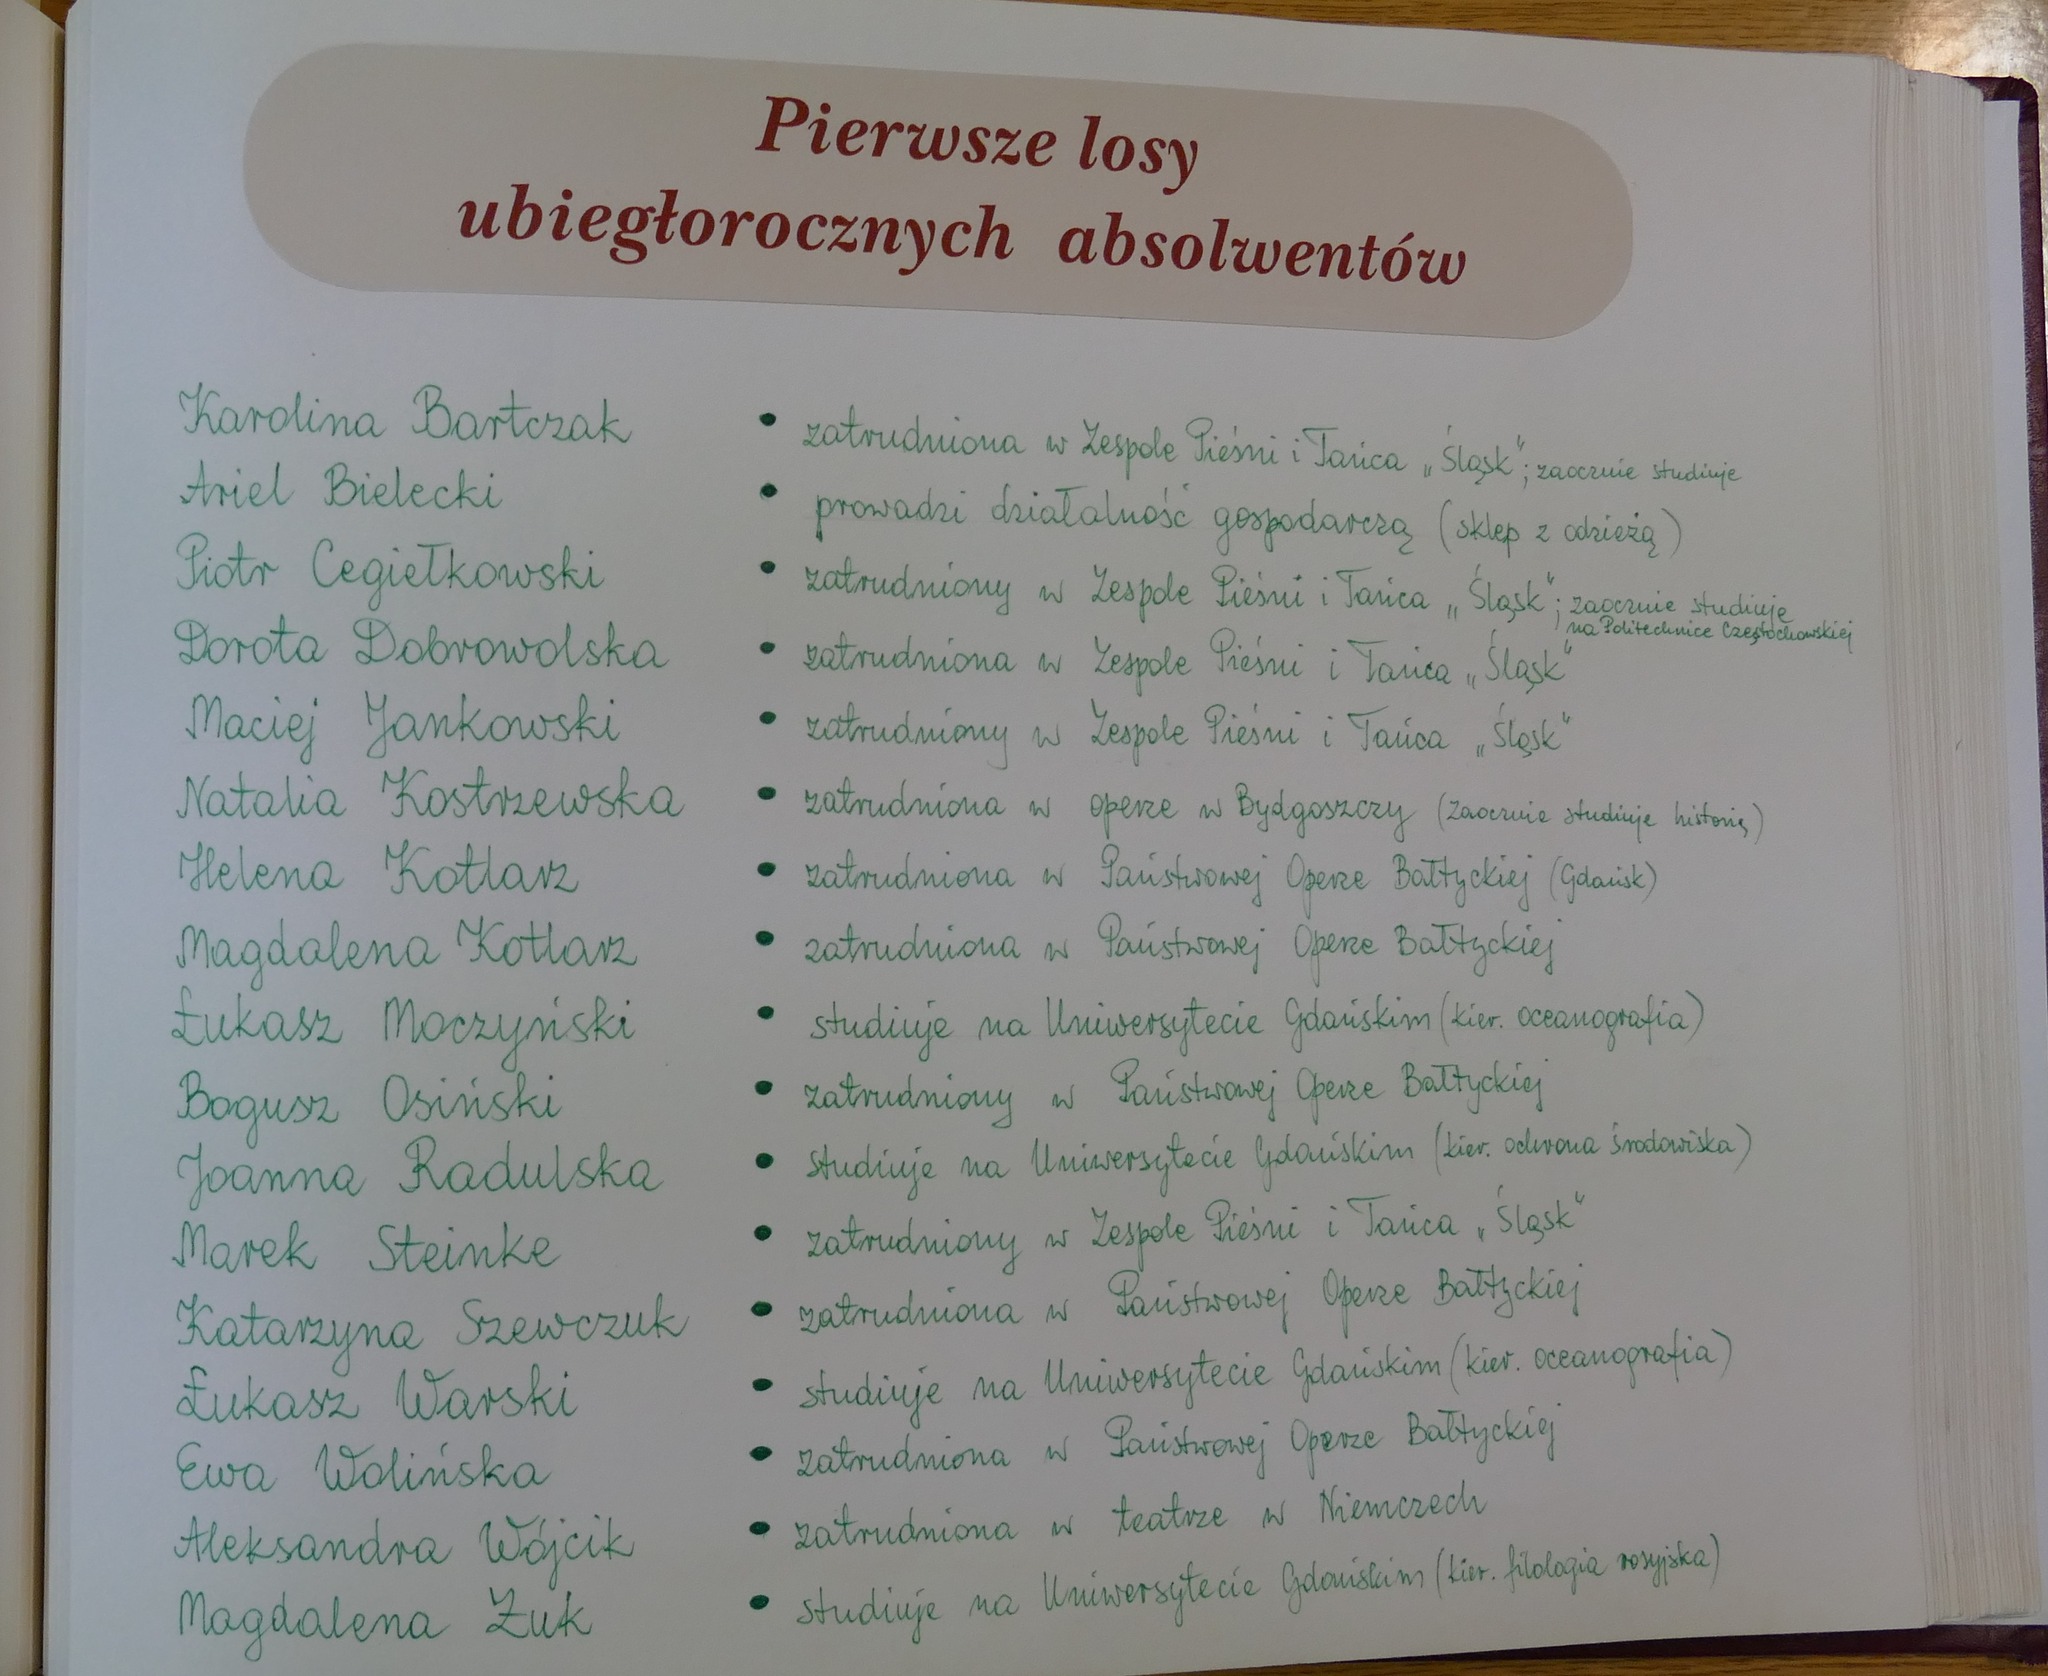 Pierwsze losy
ubiegłorocznych absolwentów
Karolina Bartczak • zatrudniona w Zespole Pieśni i Tańca „Śląsk“; zaocznie studiuje
Ariel Bielecki • prowadzi działalność gospodarczą (sklep z odzieżą)
Piotr Cegiełkowski • zatrudniony w Zespole Pieśni i Tańca „Śląsk“; zaocznie studiuje
na Politechnice Częstochowskiej
Dorota Dobrowolska • zatrudniona w Zespole Pieśni i Tańca „Śląsk“
Maciej Jankowski • zatrudniony w Zespole Pieśni i Tańca „Śląsk“
Natalia Kostrzewska • zatrudniona w operze w Bydgoszczy (zaocznie studiuje historię)
Helena Kotlarz • zatrudniona w Państwowej Operze Bałtyckiej (Gdańsk)
Magdalena Kotlarz • zatrudniona w Państwowej Operze Bałtyckiej
Łukasz Moczyński • studiuje na Uniwersytecie Gdańskim (kier. oceanografia)
Bogusz Osiński • zatrudniony w Państwowej Operze Bałtyckiej
Joanna Radulska • studiuje na Uniwersytecie Gdańskim (kier. ochrona środowiska)
Marek Steinke • zatrudniony w Zespole Pieśni i Tańca „Śląsk“
Katarzyna Szewczuk • zatrudniona w Państwowej Operze Bałtyckiej
Łukasz Warski • studiuje na Uniwersytecie Gdańskim (kier. oceanografia)
Ewa Wolińska • zatrudniona w Państwowej Operze Bałtyckiej
Aleksandra Wójcik • zatrudniona w teatrze w Niemczech
Magdalena Żuk • studiuje na Uniwersytecie Gdańskim (kier. filologia rosyjska)